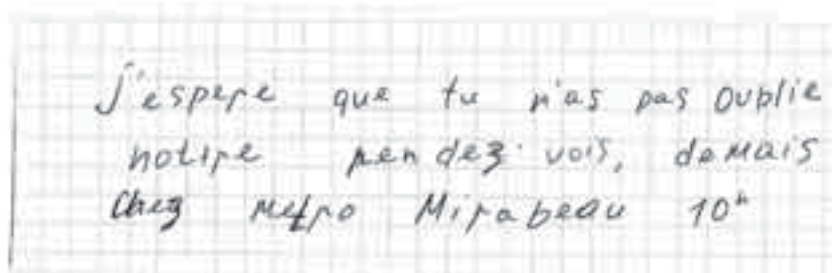 J'espere que tu n'as pas oublie
notire ren dez vois, demais
Chez metro Mirabeau 10h